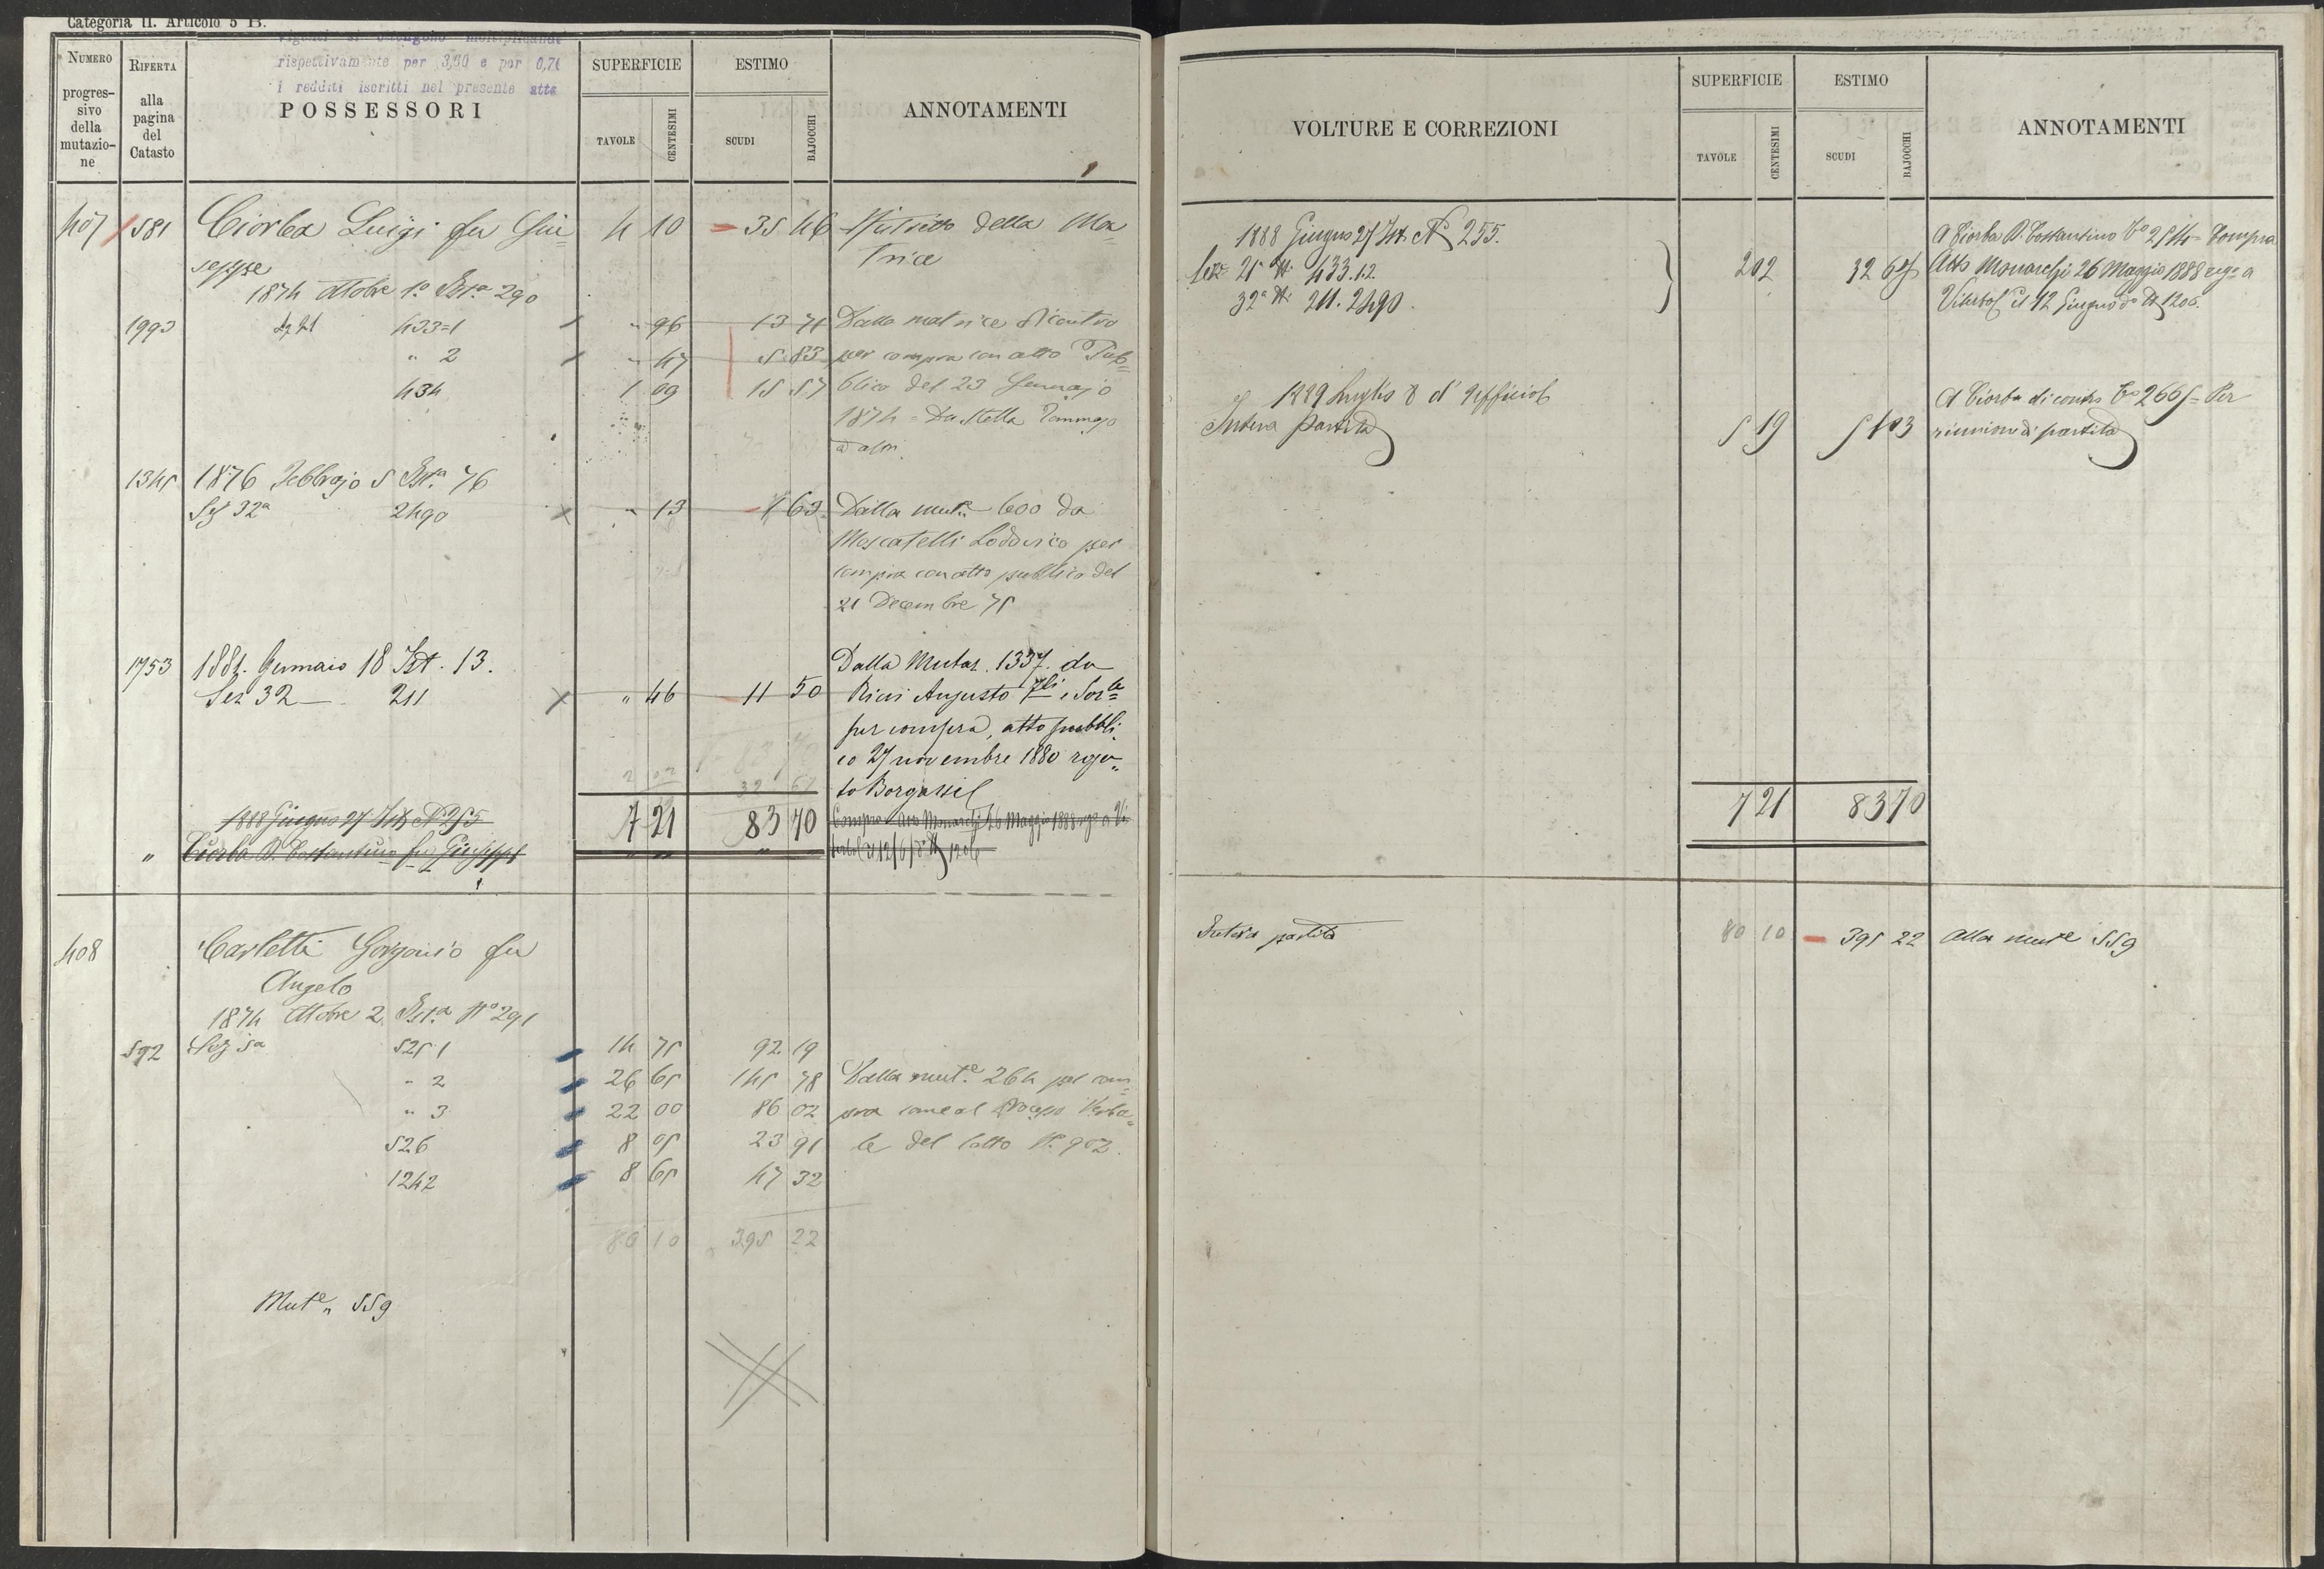 Categoria II. Articolo 5 B.
rispettivamente per 3,80 e per 0,71
i redditi iscritti nel presente atto
NUMERO
progres-
sivo
della
mutazio-
ne
RIFERTA
alla
pagina
del
Catasto
POSSESSORI
SUPERFICIE
TAVOLE
CENTESIMI
ESTIMO
SCUDI
BAJOCCHI
ANNOTAMENTI
407 1581 Ciorba Luigi fu Giu= 4 10 35 46 della Ma=
seppe trice
1874 Ottobre 1° Ist.a 290
1993 433=1 " 96 13 71 Dalla matrice dicontro
" 2 " 47 5 83 per compra con atto Pub=
434 1 09 15 57 blico del 23 Gennajo
1874 = Da Stella Tommaso
ed altri.
1345 1876 Febbrajo 5 Ist.a 76
Sez 32a 2490 " 13 1 63 Dalla mut.e 600 da
Moscatelli Lodovico per
compra con atto publico del
21 Decembre 75
1753 1881. Gennaio 18 Ist. 13. Dalla Mutaz. 1337. da
Sez 32 211 " 46 11 50 Ricci Augusto f.lli e Sor.le
per compera, atto pubbli=
co 27 novembre 1880 roga=
2 02 32 67 to Borgassi
1888 Giugno 27 Ist. N° 255 7 21 83 70 Compra Atto Monarchi 26 Maggio 1888 reg° a Vi
" Ciorba D. Costantino fu Giuseppe " " " terbo il 12/6/d° N 1206
408 Carletti Gorgonio fu
Angelo
1874 Ottobre 2 Ist.a N° 291
592 Sez 5a 525 1 14 75 92 19
" 2 26 65 145 78 Dalla mut.e 264 per com=
" 3 22 00 86 02 pra come al Processo Verba=
526 8 05 23 91 le del lotto N° 902.
1242 8 65 47 32
80 10 395 22
Mut.e " 559
VOLTURE E CORREZIONI
SUPERFICIE
TAVOLE
CENTESIMI
ESTIMO
SCUDI
BAJOCCHI
ANNOTAMENTI
1888 Giugno 27 Ist. N° 255. A Ciorba D. Costantino C° 2514= Compra
Sez= 21a N. 433.1.2. 2 02 32 67 Atto Monarchi 26 Maggio 1888 reg° a
32a N. 211. 2490. Viterbo il 12 Giugno d° N 1206.
1889 Luglio 8 d' Ufficio A Ciorba di contro C° 2665= Per
Intera partita 5 19 51 03 riunione di partita
7 21 83 70
Intera partita 80 10 395 22 Alla mut.e 559